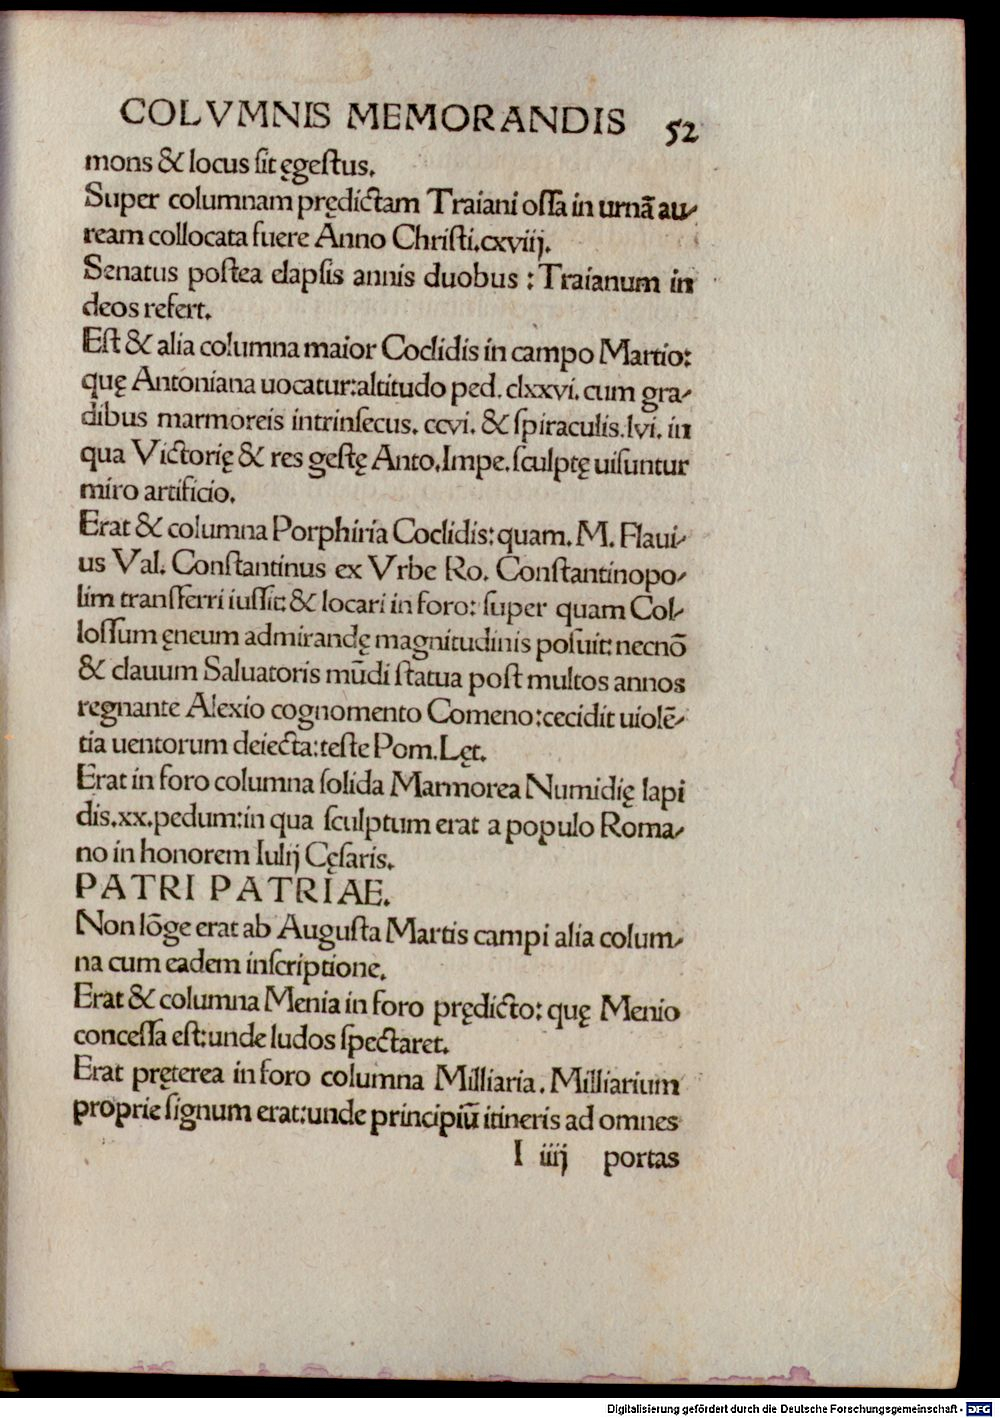 COLVMNIS MEMORANDIS 52
mons & locus sit ęgestus.
Super columnam prędictam Traiani ossa in urnā au-
ream collocata fuere Anno Christi.cxviij.
Senatus postea elapsis annis duobus : Traianum in
deos refert.
Est & alia columna maior Coclidis in campo Martio:
quę Antoniana uocatur:altitudo ped. clxxvi. cum gra-
dibus marmoreis intrinsecus. ccvi. & spiraculis.lvi. in
qua Victorię & res gestę Anto.Impe. sculptę uisuntur
miro artificio.
Erat & columna Porphiria Coclidis: quam. M. Flaui-
us Val. Constantinus ex Vrbe Ro. Constantinopo-
lim transferri iussit: & locari in foro: super quam Col-
lossum ęneum admirandę magnitudinis posuit: necnō
& clauum Saluatoris mūdi statua post multos annos
regnante Alexio cognomento Comeno:cecidit uiolē-
tia uentorum deiecta:teste Pom.Lęt.
Erat in foro columna solida Marmorea Numidię lapi
dis.xx.pedum:in qua sculptum erat a populo Roma-
no in honorem Iulij Cęsaris.
PATRI PATRIAE.
Non lōge erat ab Augusta Martis campi alia colum-
na cum eadem inscriptione.
Erat & columna Menia in foro prędicto: quę Menio
concessa est:unde ludos spectaret.
Erat pręterea in foro columna Milliaria. Milliarium
proprie signum erat:unde principiū itineris ad omnes
I iiij portas
Digitalisierung gefördert durch die Deutsche Forschungsgemeinschaft - DFG